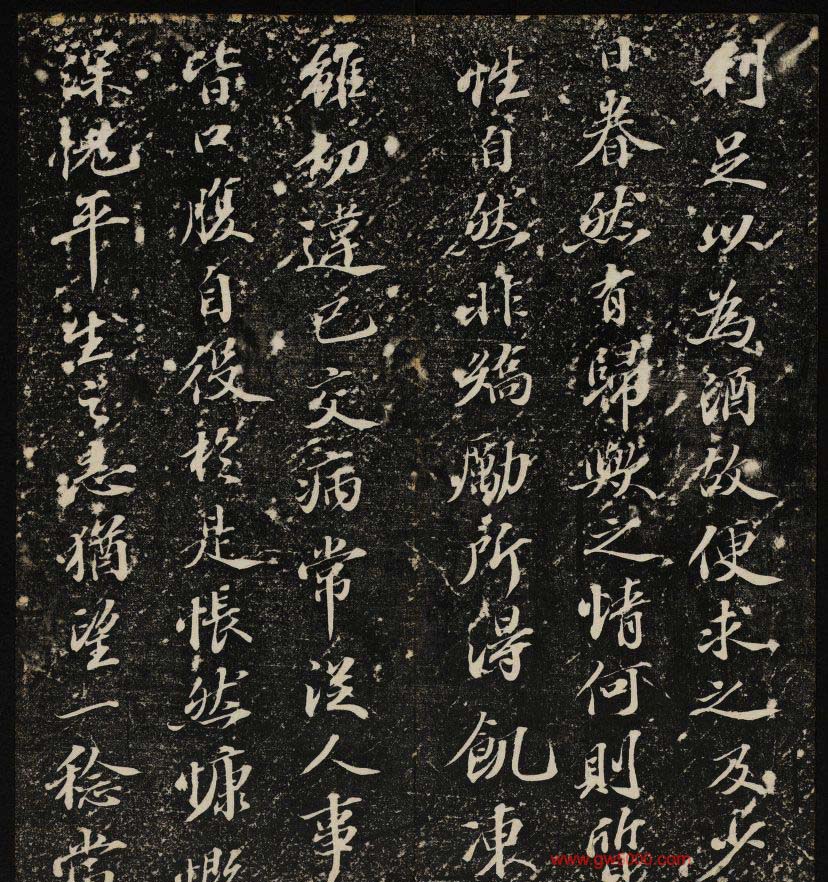 利足以為酒故便求之及少
日眷然有歸歟之情何則質
性自然非矯勵所得飢凍
雖切違已交病常從人事
皆口腹自役於是悵然慷慨
深愧平生之志猶望一稔當
www.gw5000.com